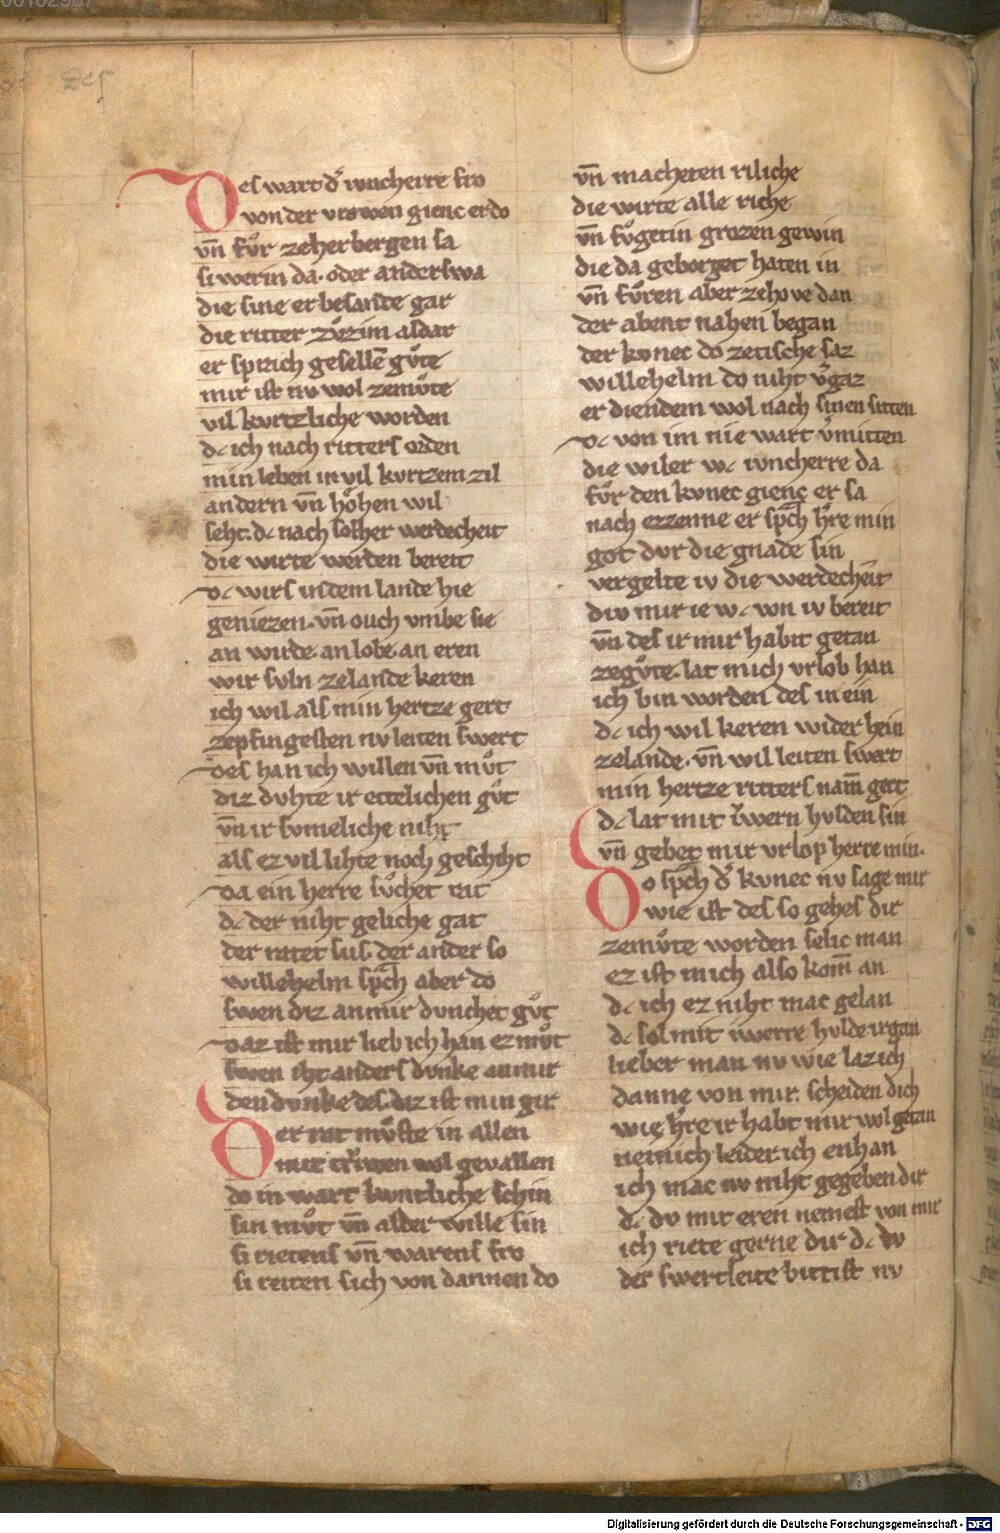 Des wart d᷑ iuncherre fro
von der vrowen gienc er do
vn̄ fuͦr ze herbergen sa
si werin da· oder anderswa
die sine er besande gar
die ritter zuͦzim aldar
er sprach geselle guͦte
mir ist nv wol zemuͦte
vil kvrtzliche worden
dc ich nach ritters orden
min leben in vil kvrtzem zil
andern vn̄ hoͤhen wil
seht· dc nach solher werdecheit
die wirte werden bereit
dc wirs in dem lande hie
geniezen· vn̄ ouch vmbe sie
an wirde· an lobe· an eren
wir svln zelande keren
ich wil als min hertze gert
zepfingesten nv leiten swert
des han ich willen vn̄ muͦt
diz dvhte ir ettelichen guͦt
vn̄ ir svmeliche niht
als ez vil lihte noch geschiht
da ein herre suͦchet rat
dc der niht geliche gat
der ratet sus· der ander so
willehelm sp͛ch aber do
swen diz an mir dvnchet guͦt
daz ist mir lieb ich han ez muͦt
swen iht anders dvnke an mir
den dvnke des· diz ist min gir
Der rat muͦste in allen
mit triwen wol gevallen
do in wart kvntliche schin
sin muͦt vn̄ alder wille sin
si rietens vn̄ warens fro
si reiten sich von dannen do
vn̄ macheten riliche
die wirte alle riche
vn̄ fuͦgetin grozen gewin
die da geborget haten in
vn̄ fuͦren aber ze hove dan
der abent nahen began
der kvnec do ze tische saz
willehelm do niht v᷑gaz
er diende im wol nach sinen sitten
dc von im nie wart v᷑mitten
die wiler wc iuncherre da
fuͤr den kvnec gienc er sa
nach ezzenne er sp͛ch h᷑re min
got dvr die gnade sin
vergelte iv die werdecheit
div mir ie wc von iv bereit
vn̄ des ir mir habit getan
zeguͦte· lat mich vrlob han
ich bin worden des in ein
dc ich wil keren wider hein
zelande· vn̄ wil leiten swert
min hertze ritters nam̄ gert
dc lat mit iwern hvlden sin
vn̄ gebet mir vrlop herre min·
Do sp͛ch d᷑ kvnec nv sage mir
wie ist des so gehes dir
zemuͦte worden selic man
ez ist mich also kom̄ an
dc ich ez niht mac gelan
dc sol mit iwerre hvlde irgan
lieber man nv wie laz ich
danne von mir· scheiden dich
wie h᷑re ir habt mir wol getan
nein ich leider ich enhan
ich mac nv niht gegeben dir
dc dv mit eren nemest von mir
ich riete gerne dir dc dv
der swertleite bittist nv
Digitalisierung gefördert durch die Deutsche Forschungsgemeinschaft - DFG